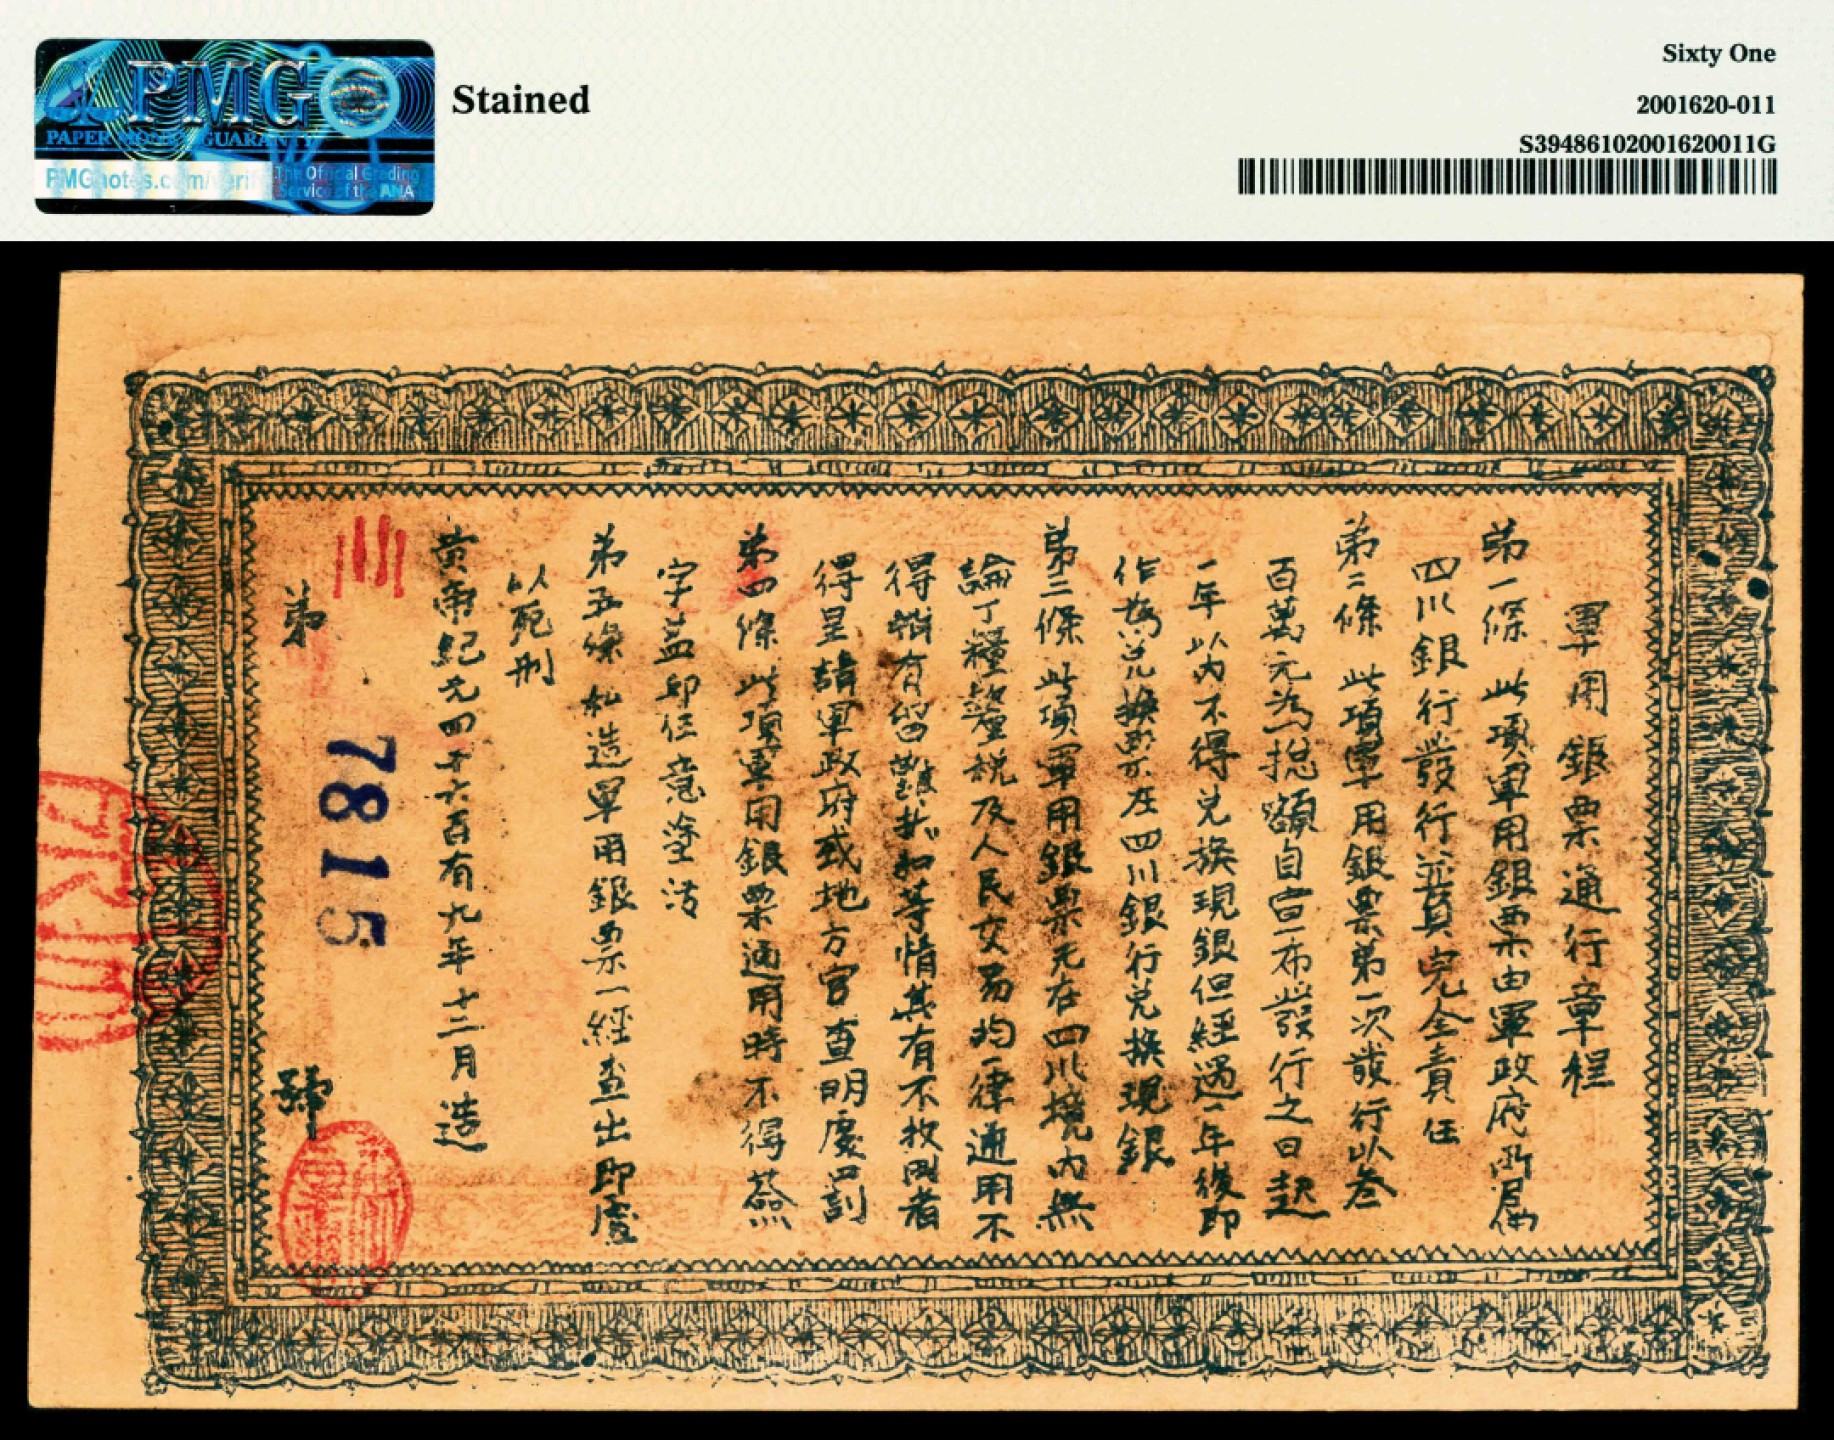 PMG
PAPER MONEY GUARANTY
PMGnotes.com/verify
The Official Grading
Service of the ANA
Stained
Sixty One
2001620-011
S39486102001620011G
軍用銀票通行章程
第一條 此項軍用銀票由軍政府所屬
四川銀行發行並負完全責任
第二條 此項軍用銀票第一次發行以叁
百萬元為總額自宣布發行之日起
一年以內不得兌換現銀但經過一年後即
作為兌換票在四川銀行兌換現銀
第三條 此項軍用銀票凡在四川境內無
論丁糧釐稅及人民交易均一律通用不
得稍有留難折扣等情其有不收用者
得呈請軍政府或地方官查明處罰
第四條 此項軍用銀票通用時不得蔡
字蓋印任意塗汚
第五條 私造軍用銀票一經查出即處
以死刑
黄帝紀元四千六百有九年十二月造
三
第 7815 號